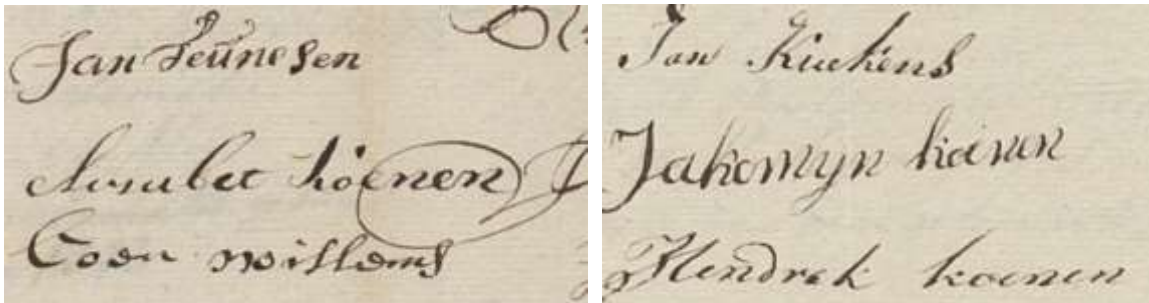 Jan Teunesen
koenen
Coen willems
Jan Kuekens
Jakomyn koenen
Hendrek koenen